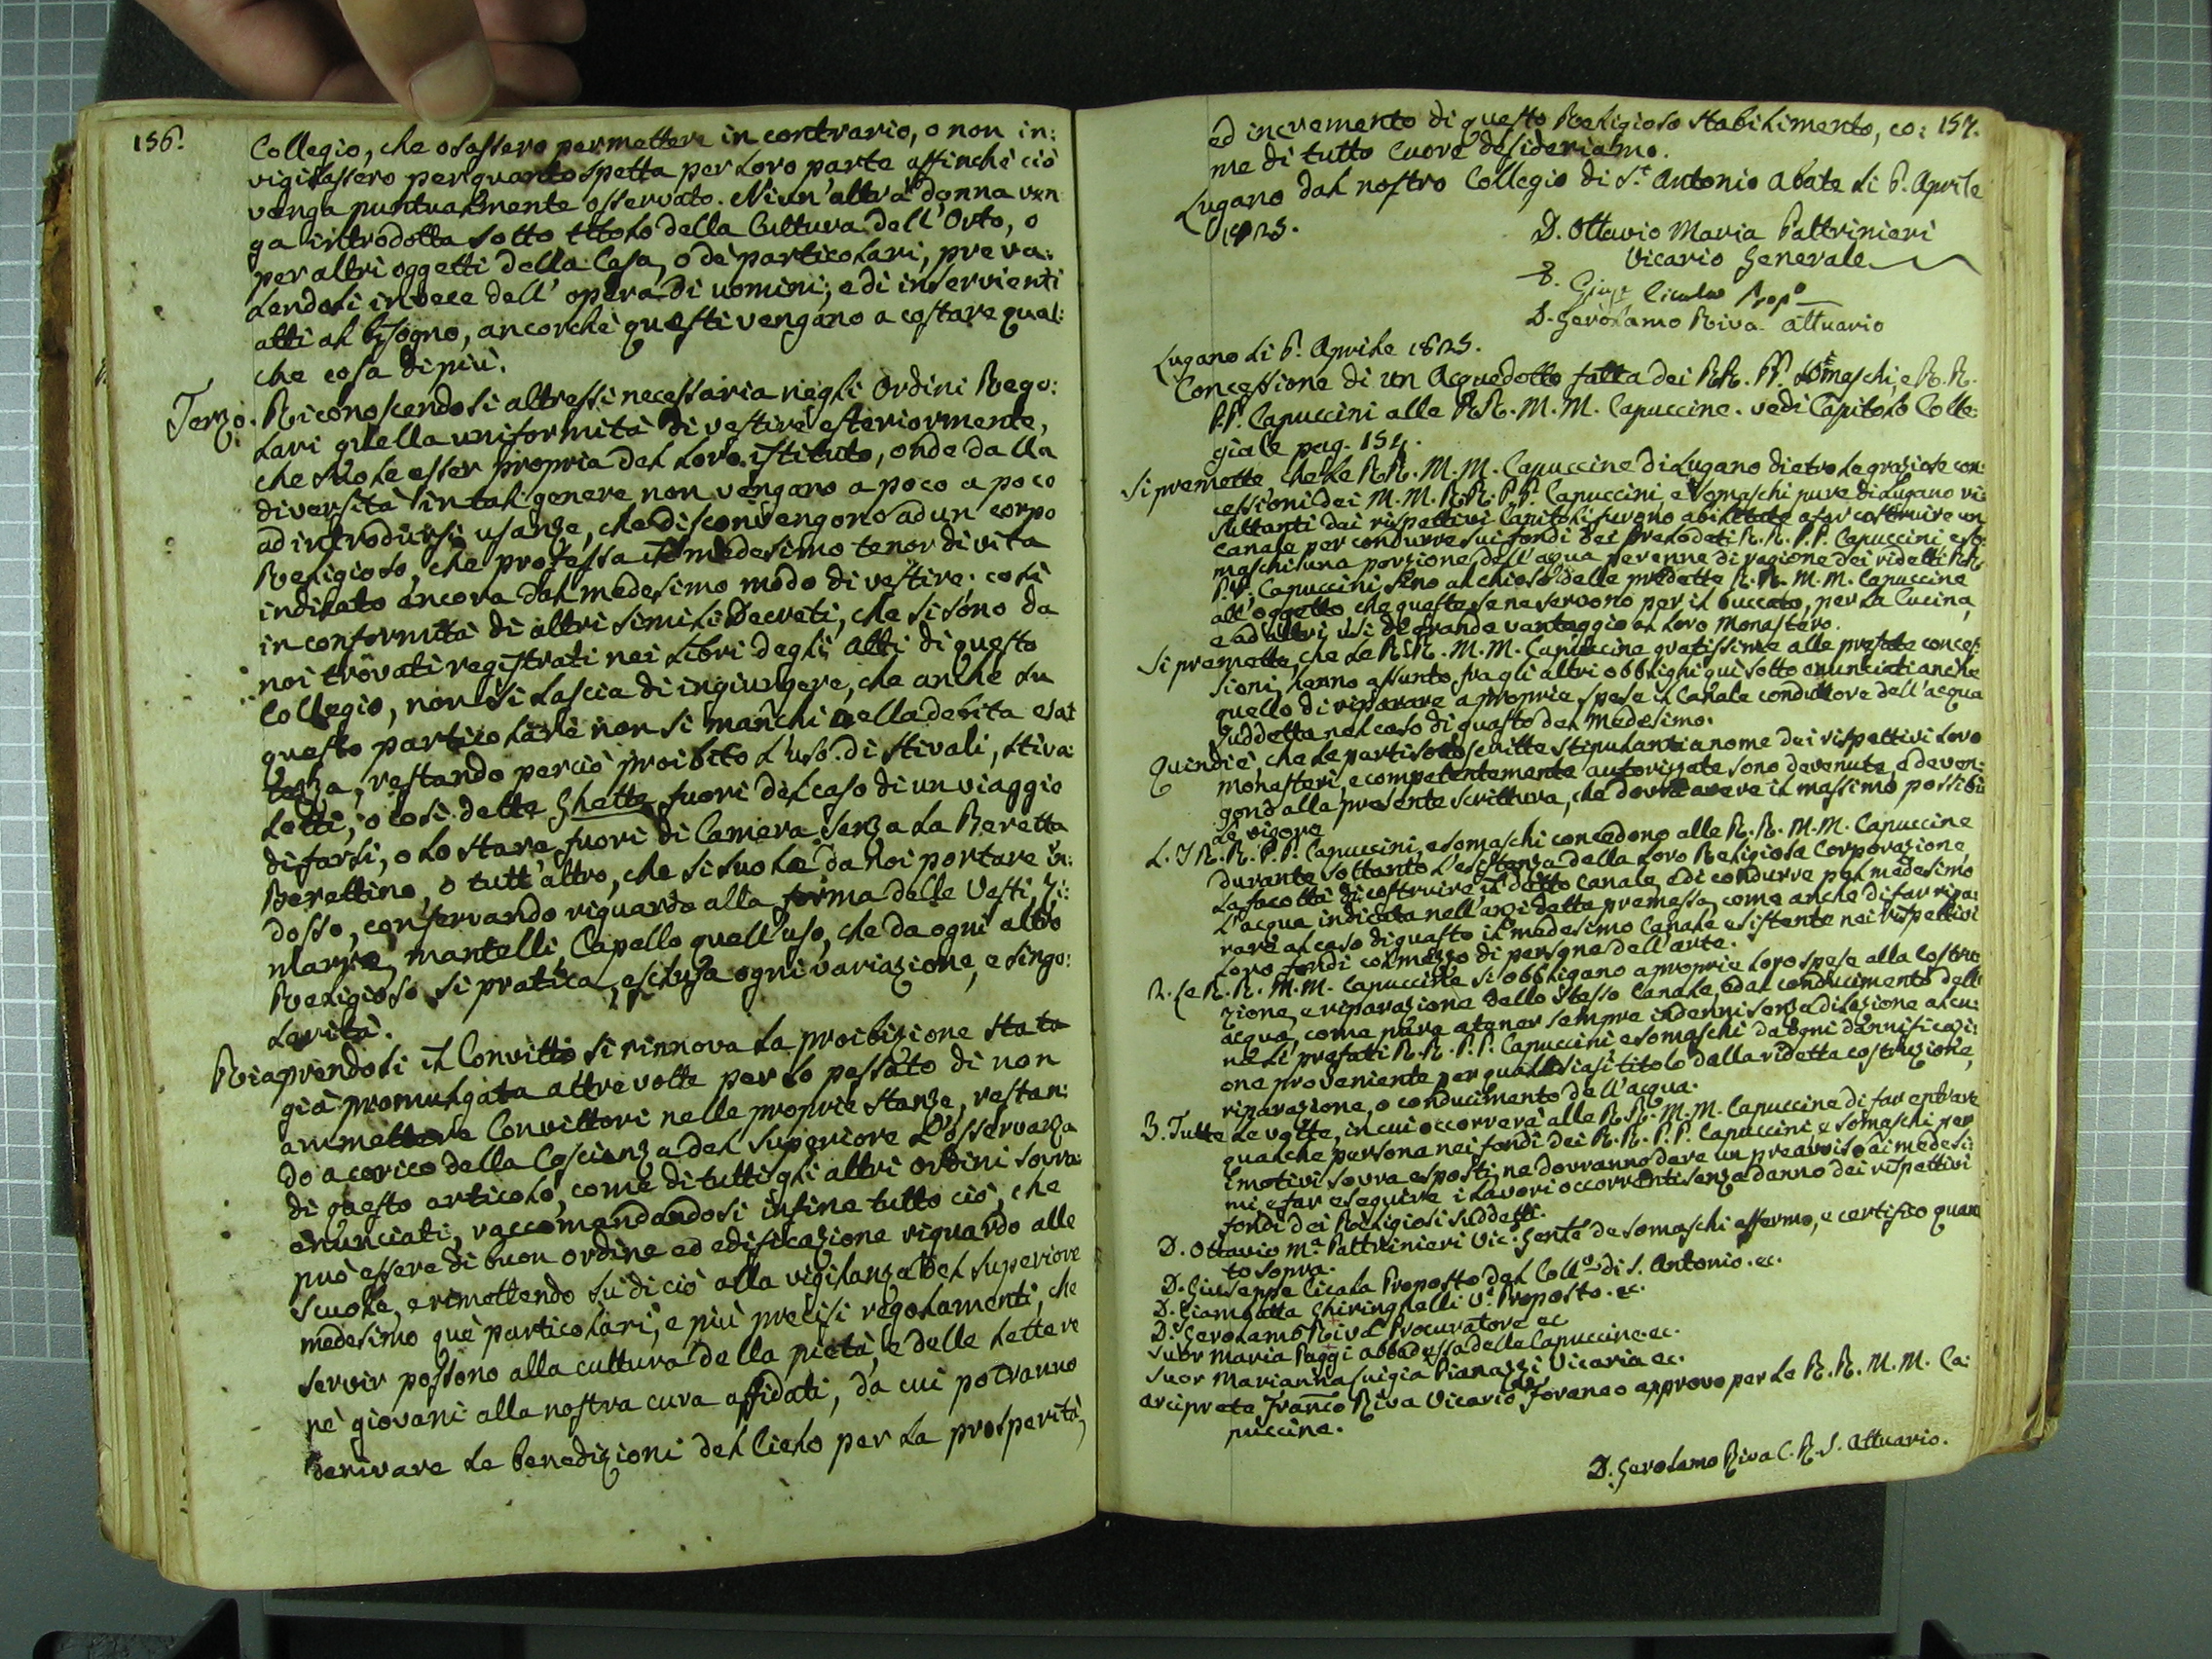 156.
Collegio, che osassero permettere in contrario, o non in:
vigilassero per quanto spetta per loro parte affinchè ciò
venga puntualmente osservato. Niun'altra donna ven
ga introdotta sotto titolo della Cultura dell'Orto, o
per altri oggetti della Casa, o de' particolari, preva:
lendosi invece dell'opera di uomini, e di inservienti
atti al bisogno, ancorchè questi vengano a costare qual:
che cosa di più.
Terzo. Riconoscendosi altressi necessaria negli Ordini Rego:
lari quella uniformità di vestire esteriormente,
che suole esser propria del loro istituto, onde dalla
diversità in tal genere non vengano a poco a poco
ad introdursi usanze, che disconvengono ad un corpo
Religioso, che professa il medesimo tenor di vita
indicato ancora dal medesimo modo di vestire; così
in conformità di altri simili Decreti, che si sono da
noi trovati registrati nei Libri degli Atti di questo
Collegio, non si lascia di ingiungere, che anche su
questo particolare non si manchi nella debita esat
tezza, restando perciò proibito l'uso di stivali, stiva:
letti, o così dette Ghette fuori del caso di un viaggio
di farsi, o lo stare fuori di Camera senza la Beretta
Berettino, o tutt'altro, che si suole da noi portare in:
dosso, conservando riguardo alla forma delle Vesti, Zi:
marre, mantelli, Capello quell'uso, che da ogni altro
Religioso si pratica, esclusa ogni variazione, e singo:
larità.
Riaprendosi il Convitto si rinnova la proibizione stata
già promulgata altre volte per lo passato di non
ammettere Convittori nelle proprie stanze, restan:
do a carico della Coscienza del Superiore l'osservanza
di questo articolo, come di tutti gli altri ordini sovra:
enunciati, raccomandandosi infine tutto ciò, che
può essere di buon ordine ed edificazione riguardo alle
Scuole, e rimettendo su di ciò alla vigilanza del Superiore
medesimo que' particolari, e più precisi regolamenti, che
servir possono alla cultura della pietà, e delle Lettere
ne' giovani alla nostra cura affidati, da cui potranno
derivare le benedizioni del Cielo per la prosperità,
ed incremento di questo Religioso stabilimento, co: 157.
me di tutto Cuore desideriamo.
Lugano dal nostro Collegio di S.t Antonio Abate li 6. Aprile
1825.
D. Ottavio Maria Paltrinieri
Vicario Generale
D. Gius.e Cicala Prop.o
D. Gerolamo Riva Attuario
Lugano li 6. Aprile 1825.
Concessione di un Acquedotto fatta dei RR. PP. Somaschi, e R.R.
P.P. Capuccini alle R.R. M.M. Capuccine. vedi Capitolo Colle:
giale pag. 154.
Si premette che le R.R. M.M. Capuccine di Lugano dietro le graziose con:
cessioni dei M.M. R.R. P.P. Capuccini, e Somaschi pure di Lugano ri:
sultanti dai rispettivi Capitoli furono abilitate a far costruire un
canale per condurre sui fondi dei prelodati R.R. P.P. Capuccini e So:
maschi una porzione dell'aqua perenne di ragione dei ridetti RR.
P.P. Capuccini, sino al chioso delle predette R.R. M.M. Capuccine
all'oggetto, che queste se ne servono per il buccato, per la Cucina,
e ad altri usi di grande vantaggio al loro Monastero.
Si premette, che le R.R. M.M. Capuccine gratissime alle prefate conces:
sioni, hanno assunto, fra gli altri obblighi quì sotto enunciati anche
quello di riparare a proprie spese il Canale conduttore dell'acqua
suddetta nel caso di guasto del medesimo.
Quindi è, che le parti sottoscritte stipulanti a nome dei rispettivi loro
monasteri, e competentemente autorizzate sono devenute, e deven:
gono alla presente scrittura, che dovrà avere il massimo possibi
le vigore
1. I R.R. P.P. Capuccini, e Somaschi concedono alle R.R. M.M. Capuccine
durante soltanto l'esistenza della loro Religiosa Corporazione,
la facoltà di costruire il detto Canale, e di condurre pel medesimo
l'acqua indicata nell'anzidetta premessa, come anche di far ripa:
rare al caso di guasto il medesimo Canale esistente nei rispettivi
loro fondi col mezzo di persone dell'arte.
2. Le R.R. M.M. Capuccine si obbligano a proprie loro spese alla Costru
zione, e riparazione dello stesso Canale, ed al conducimento dell'
acqua, come pure a tener sempre indenni senza dilazione alcu:
na li prefati R.R. P.P. Capuccini e Somaschi da ogni dannificazi:
one proveniente per qualsisiasi titolo dalla ridetta costruzione,
riparazione, o conducimento dell'acqua.
3. Tutte le volte, in cui occorrerà alle R.R. M.M. Capuccine di far entrare
qualche persona nei fondi dei R.R. P.P. Capuccini, e Somaschi per
i motivi sovra esposti, ne dovranno dare un preavviso ai medesi:
mi, e far eseguire i lavori occorrenti senza danno dei rispettivi
fondi dei Religiosi suddetti.
D. Ottavio M.a Paltrinieri Vic. Gen.le de Somaschi affermo, e certifico quan
to sopra.
D. Giuseppe Cicala Proposto del Coll.o di S. Antonio. ec.
D. Giambatta Ghiringhelli V.e Proposto. ec.
D. Gerolamo Riva Procuratore ec
Suor Maria Paggi abbadessa delle Capuccine. ec.
Suor Marianna Luigia Pianazzi Vicaria ec.
Arciprete Fran.co Riva Vicario Foraneo approvo per le R.R. M.M. Ca:
puccine.
D. Gerolamo Riva C.R.S. Attuario.